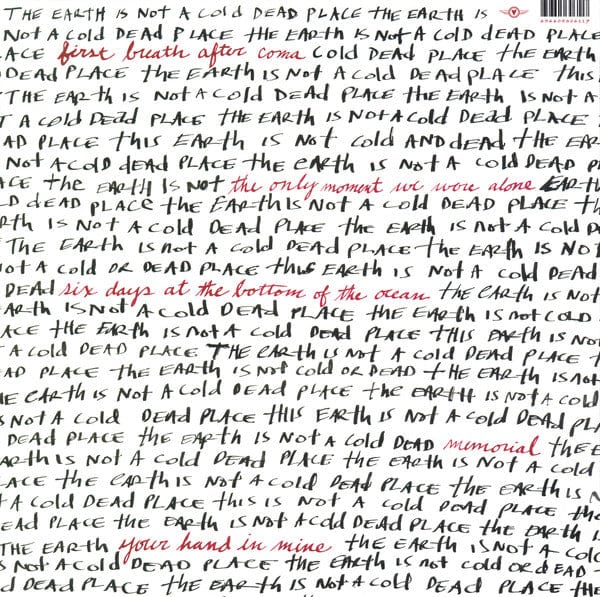 THE EARTH IS NOT A COLD DEAD PLACE THE EARTH IS
NOT A COLD DEAD PLACE THE EARTH IS NOT A COLD DEAD PLACE
LACE first breath after coma COLD DEAD PLACE THE EARTH
DEAD PLACE THE EARTH IS NOT A COLD DEAD PLACE THIS
THE EARTH IS NOT A COLD DEAD PLACE THE EARTH IS NOT A
T A COLD DEAD PLACE THE EARTH IS NOT A COLD DEAD PLACE
AD PLACE THIS EARTH IS NOT COLD AND DEAD THE EAR
NOT A COLD DEAD PLACE THE EARTH IS NOT A COLD DEAD P
ACE THE EARTH IS NOT the only moment we were alone EARTH
LD DEAD PLACE THE EARTH IS NOT A COLD DEAD PLACE THE
RTH IS NOT A COLD DEAD PLACE THE EARTH IS NOT A COLD
THE EARTH IS NOT A COLD DEAD PLACE THE EARTH IS NO
NOT A COLD OR DEAD PLACE THIS EARTH IS NOT A COLD DEAD
DEAD six days at the bottom of the ocean THE EARTH IS NOT
EARTH IS NOT A COLD DEAD PLACE THE EARTH IS NOT COLD
ACE THE EARTH IS NOT A COLD DEAD PLACE THIS EARTH IS NO
T A COLD DEAD PLACE THE EARTH IS NOT A COLD DEAD PLACE
AD PLACE THE EARTH IS NOT COLD OR DEAD THE EARTH IS NOT
HE EARTH IS NOT A COLD DEAD PLACE THE EARTH IS NOT A COLD
S NOT A COLD DEAD PLACE THIS EARTH IS NOT A COLD DEAD PL
DEAD PLACE THE EARTH IS NOT A COLD DEAD memorial THE E
EARTH IS NOT A COLD DEAD PLACE THE EARTH IS NOT A COLD
LACE THE EARTH IS NOT A COLD DEAD PLACE THE EARTH IS N
T A COLD DEAD PLACE THIS IS NOT A COLD DEAD PLACE THE
EAD PLACE THE EARTH IS NOT A COLD DEAD PLACE THE EARTH IS
THE EARTH your hand in mine THE EARTH IS NOT A COLD
NOT A COLD DEAD PLACE THE EARTH IS NOT COLD OR DEAD
D DEAD PLACE THE EARTH IS NOT A COLD DEAD PLACE THE